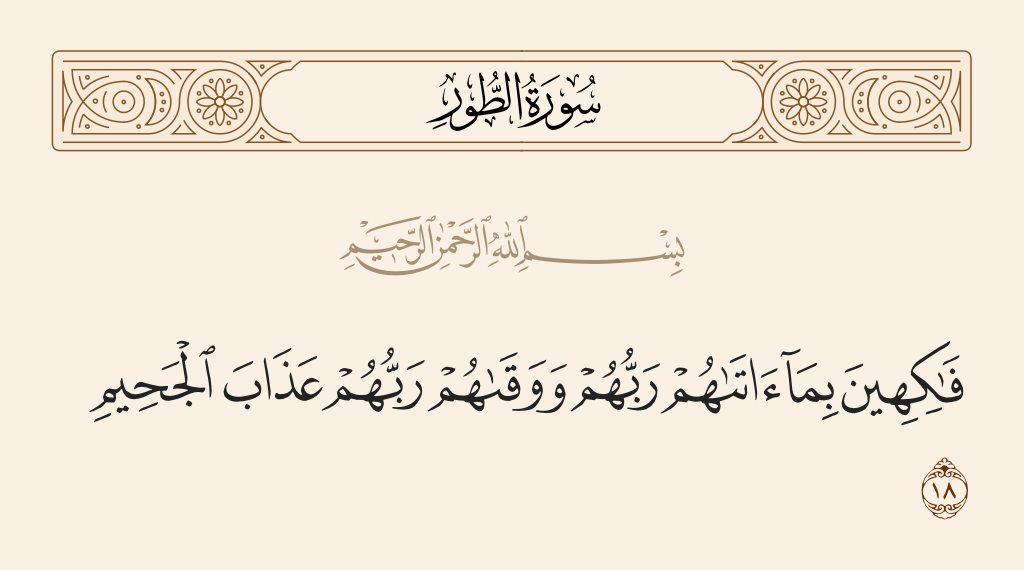 سُورَةُ الطُّورِ
بِسْمِ ٱللَّهِ ٱلرَّحْمَٰنِ ٱلرَّحِيمِ
فَـٰكِهِينَ بِمَآ ءَاتَىٰهُمْ رَبُّهُمْ وَوَقَىٰهُمْ رَبُّهُمْ عَذَابَ ٱلْجَحِيمِ
١٨